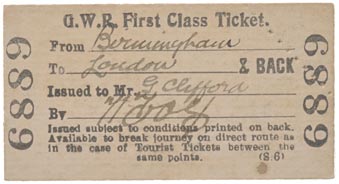 G.W.R. First Class Ticket.
6889
From Bermingham
To London & BACK
Issued to Mr. G Clifford
By
6889
Issued subject to conditions printed on back.
Available to break journey on direct route as
in the case of Tourist Tickets between the
same points. (S.6)